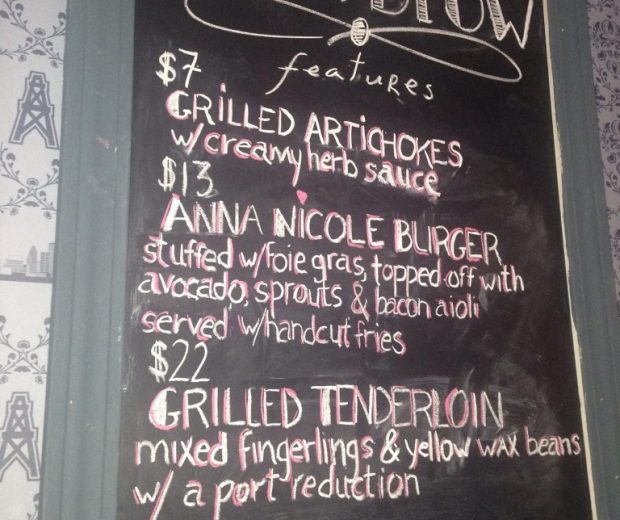 features
$7
GRILLED ARTICHOKES
w/creamy herb sauce
$13
ANNA NICOLE BURGER
stuffed w/foie gras, topped off with
avocado, sprouts & bacon aioli
served w/handcut fries
$22
GRILLED TENDERLOIN
mixed fingerlings & yellow wax beans
w/ a port reduction